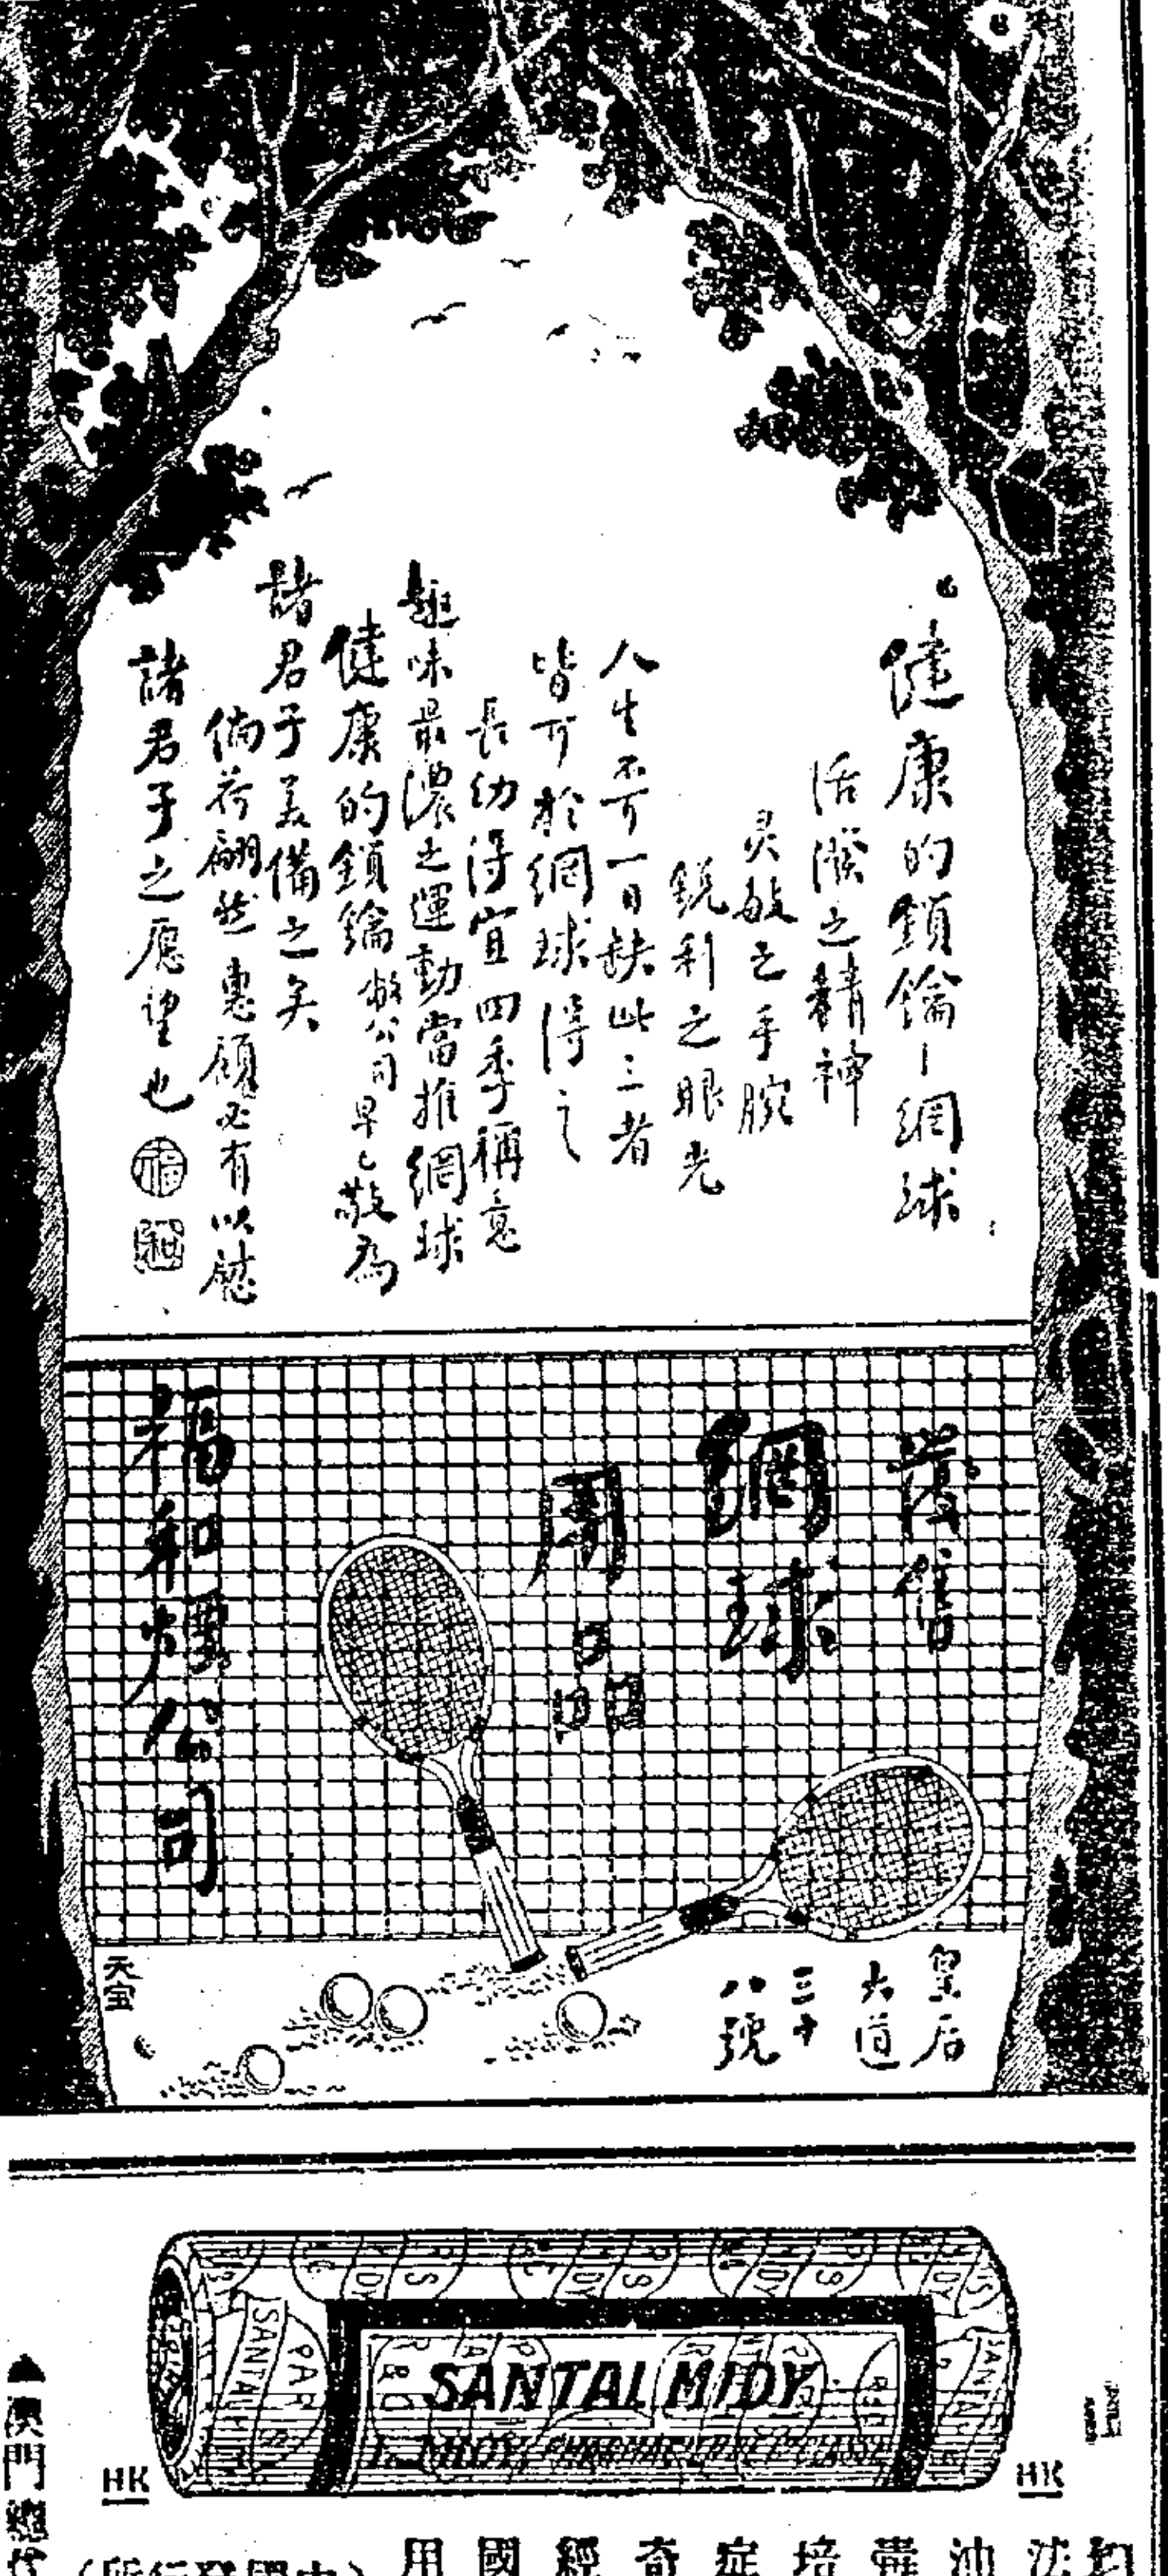 健康的鎖鑰—網球
活潑之精神
灵敏之手腕
銳利之眼光
人生不可一日缺此三者
皆可於網球得之
長幼得宜四季稱意
趣味最濃之運動當推網球
健康的鎖鑰敝公司早已敬為
諸君子美備之矣
倘荷翩然惠顧必有以慰
諸君子之愿望也
發售
網球
用品
福和煙公司
皇后
大道
三十
八號
天宝
SANTAL MIDY
HK
HK
▲澳門總